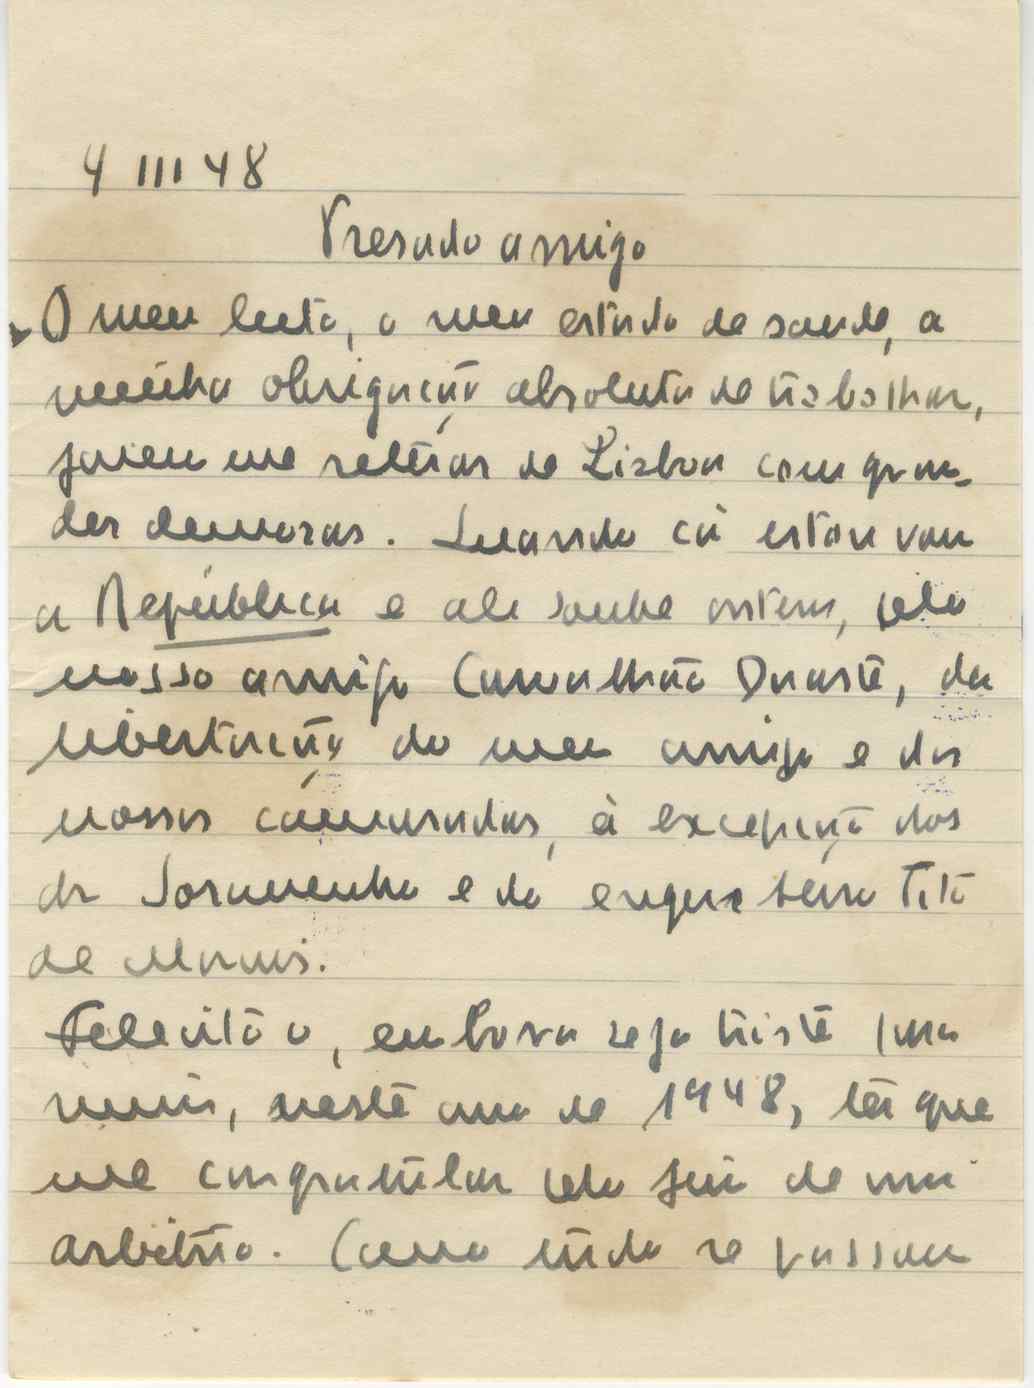 4 III 48
Presado amigo
O meu luto, o meu estado de saude, a
minha obrigação absoluta de trabalhar,
fazem me retirar de Lisboa com gran-
des demoras. Quando cá estou vou
a República e ali soube ontem, pelo
nosso amigo Carvalhão Duarte, da
libertação do meu amigo e dos
nossos camaradas, à excepção dos
dr Soramenho e do engenheiro Tito
de Morais.
Felicito o, embora seja triste para
mim, neste ano de 1948, ter que
me congratular pelo fim de um
arbitrio. Como tudo se passou